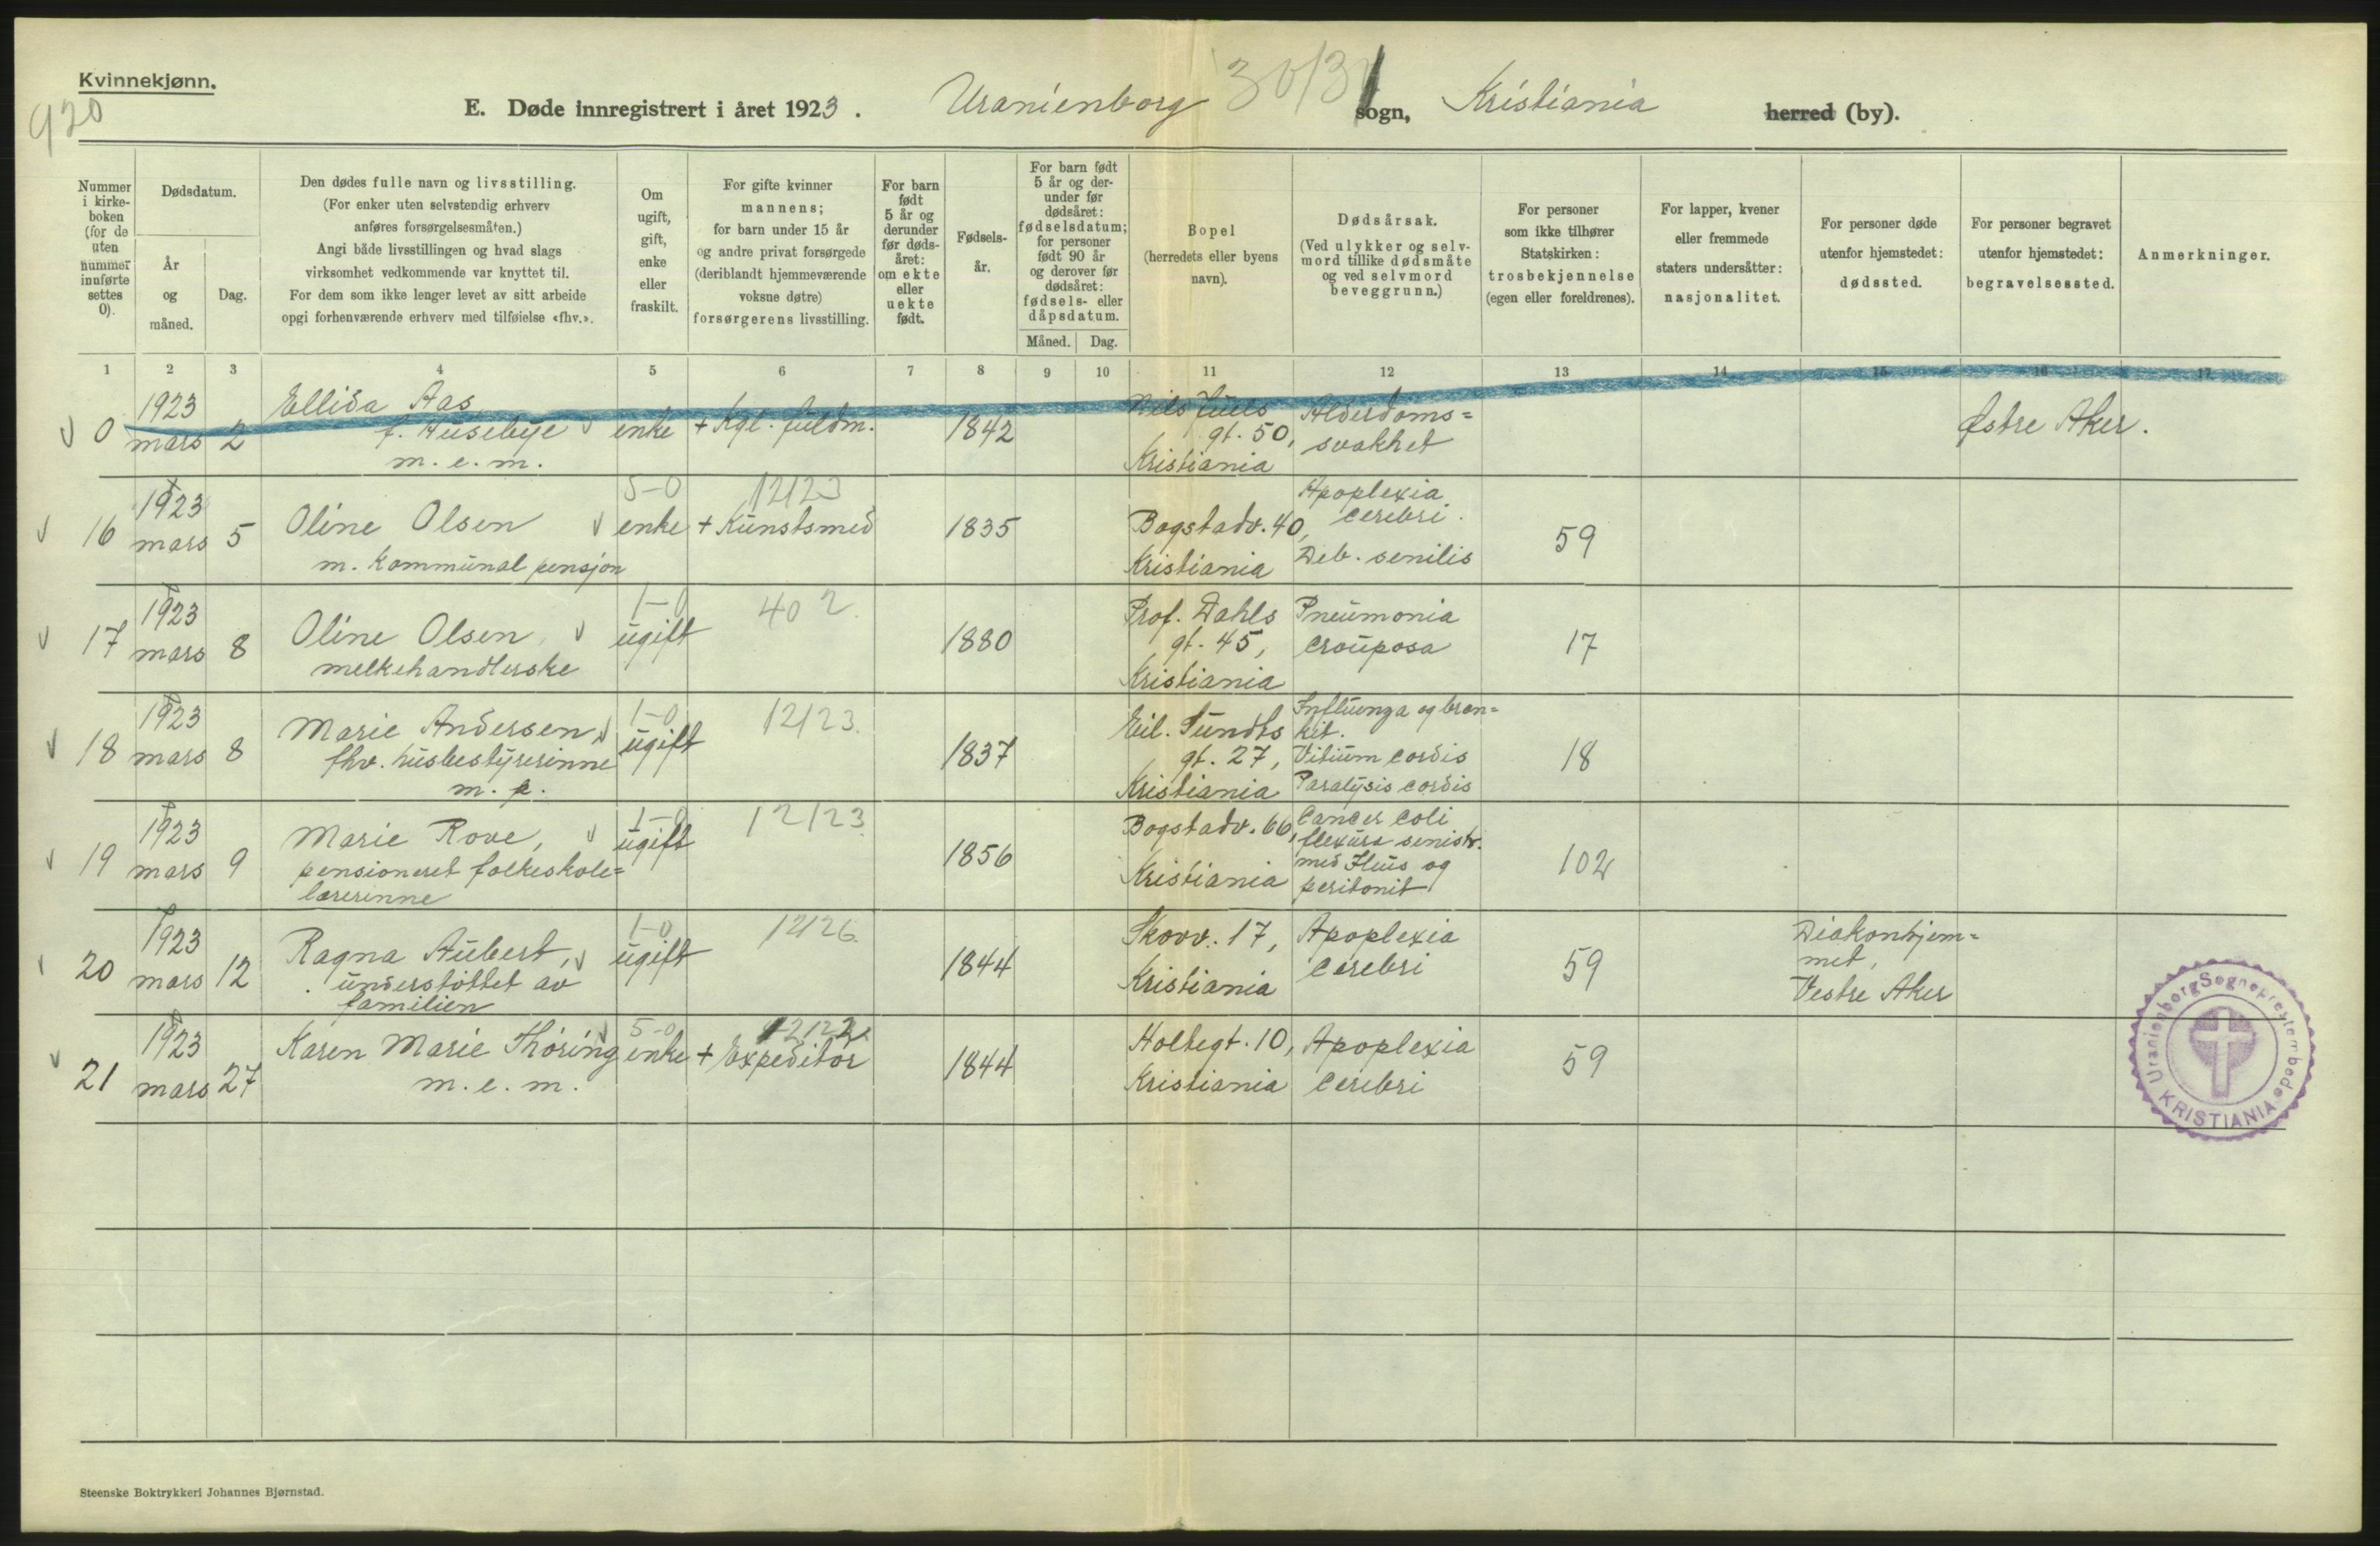 Kvinnekjønn.
920
E. Døde innregistrert i året 1923. Uranienborg sogn, Kristiania herred (by).
Nummer i kirkeboken (for de uten nummer innførte settes 0).
Dødsdatum.
År og måned.
Dag.
Den dødes fulle navn og livsstilling.
(For enker uten selvstendig erhverv
anføres forsørgelsesmåten.)
Angi både livsstillingen og hvad slags
virksomhet vedkommende var knyttet til.
For dem som ikke lenger levet av sitt arbeide
opgi forhenværende erhverv med tilføielse «fhv.».
Om
ugift,
gift,
enke
eller
fraskilt.
For gifte kvinner
mannens;
for barn under 15 år
og andre privat forsørgede
(deriblandt hjemmeværende
voksne døtre)
forsørgerens livsstilling.
For barn
født
5 år og
derunder
før døds-
året:
om ekte
eller
uekte
født.
Fødsels-
år.
For barn født
5 år og der-
under før
dødsåret:
fødselsdatum;
for personer
født 90 år
og derover før
dødsåret:
fødsels- eller
dåpsdatum.
Måned. Dag.
Bopel
(herredets eller byens
navn).
Dødsårsak.
(Ved ulykker og selv-
mord tillike dødsmåte
og ved selvmord
beveggrunn.)
For personer
som ikke tilhører
Statskirken:
trosbekjennelse
(egen eller foreldrenes).
For lapper, kvener
eller fremmede
staters undersåtter:
nasjonalitet.
For personer døde
utenfor hjemstedet:
dødssted.
For personer begravet
utenfor hjemstedet:
begravelsessted.
Anmerkninger.
1 2 3 4 5 6 7 8 9 10 11 12 13 14 15 16 17
0
1923
mars 2
Ellida Aas
f. Husebye
m. e. m.
enke
+ Kgl. fuldm.
1842
Nils Juels
gt. 50,
Kristiania
Alderdoms=
svakhet
Østre Aker.
16
1923
mars 5
Oline Olsen
m. kommunal pensjon
5-0
enke
12123
+ Kunstsmed
1835
Bogstadv. 40,
Kristiania
Apoplexia
cerebri.
Deb. senilis
59
17
1923
mars 8
Oline Olsen,
melkehandlerske
1-0
ugift
402
1880
Prof. Dahls
gt. 45,
Kristiania
Pneumonia
crouposa
17
18
1923
mars 8
Marie Andersen,
fhv. husbestyrerinne
m. p.
1-0
ugift
12123.
1837
Eil. Sundts
gt. 27,
Kristiania
Influenza og bron=
kit.
Vitium cordis
Paralysis cordis
18
19
1923
mars 9
Marie Rove,
pensioneret folkeskole=
lærerinne
1-0
ugift
12123
1856
Bogstadv. 66,
Kristiania
Cancer coli
flexura senistr.
med Ileus og
peritonit
102
20
1923
mars 12
Ragna Aubert,
understöttet av
familien
1-0
ugift
12126.
1844
Skovv. 17,
Kristiania
Apoplexia
cerebri
59
Diakonhjem=
met,
Vestre Aker
21
1923
mars 27
Karen Marie Thoring
m. e. m.
5-0
enke
+ Expeditør
1844
Holtegt. 10,
Kristiania
Apoplexia
cerebri
59
Uranienborg Sogneprestembede
KRISTIANIA
Steenske Boktrykkeri Johannes Bjørnstad.